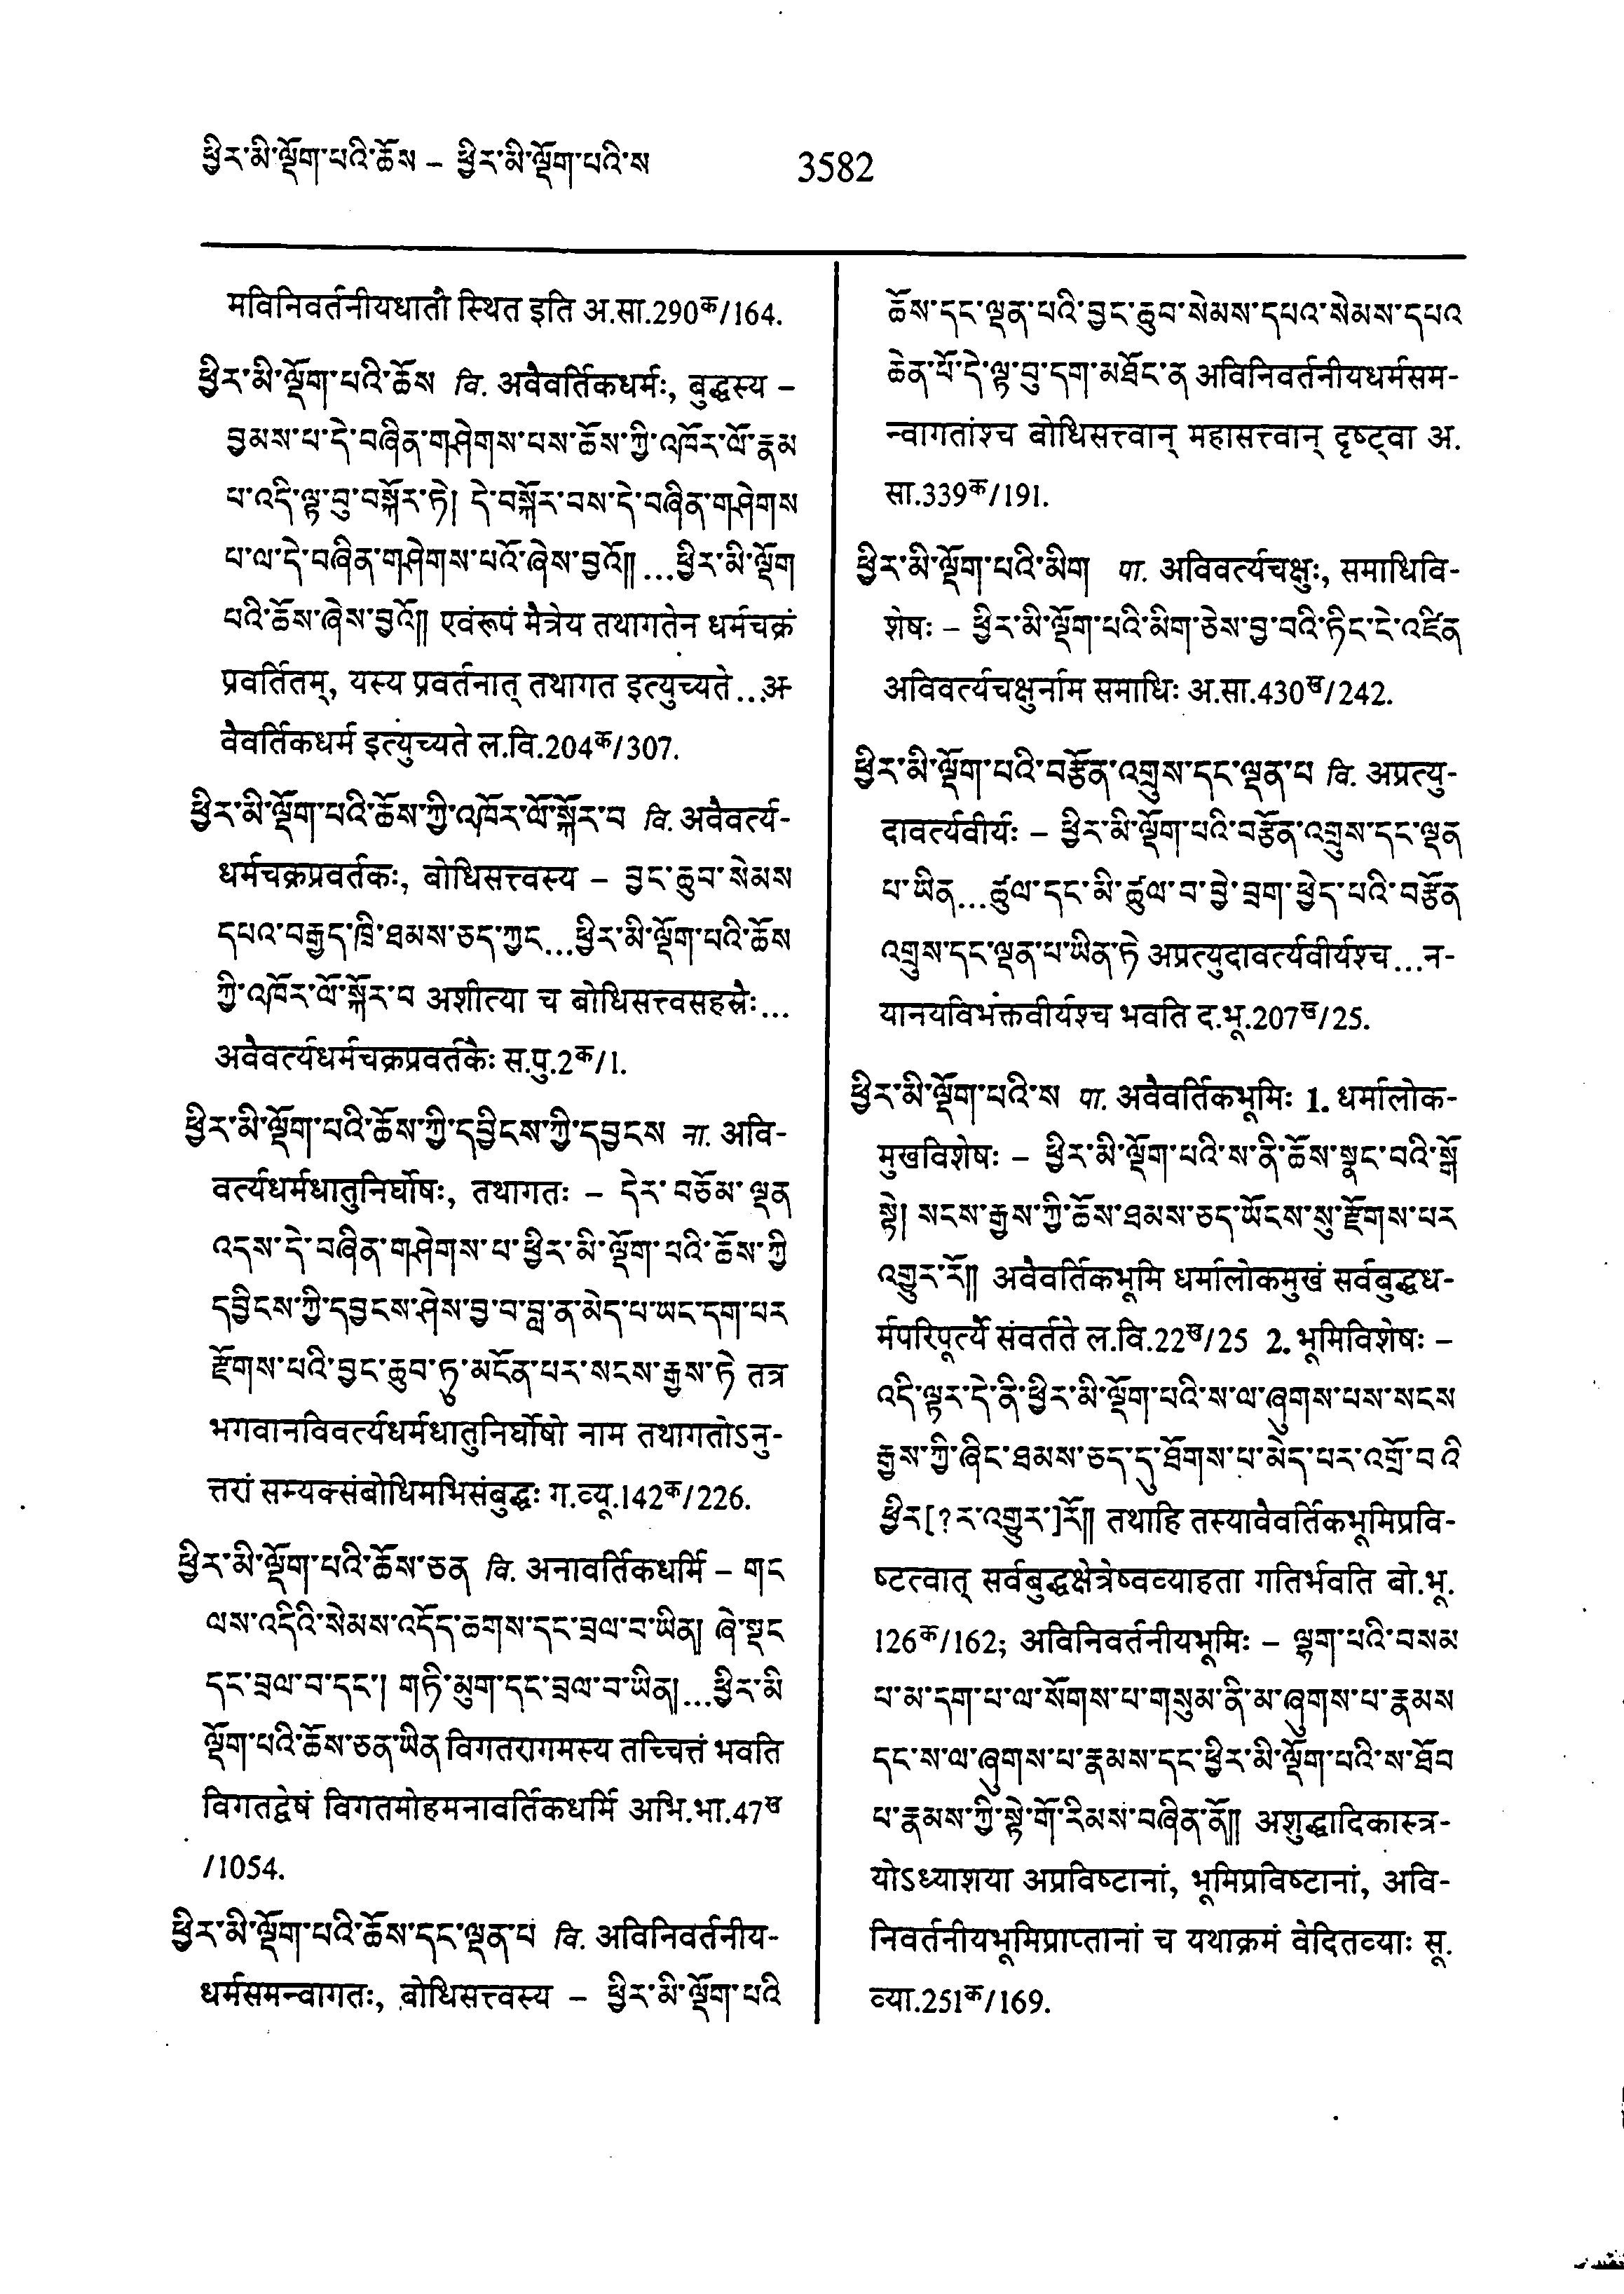 ཕྱིར་མི་ལྡོག་པའི་ཆོས – ཕྱིར་མི་ལྡོག་པའི་ས
3582
मविनिवर्तनीयधातौ स्थित इति अ.सा.290क/164.
ཕྱིར་མི་ལྡོག་པའི་ཆོས वि. अवैवर्तिकधर्मः, बुद्धस्य –
བྱམས་པ་དེ་བཞིན་གཤེགས་པས་ཆོས་ཀྱི་འཁོར་ལོ་རྣམ
པ་འདི་ལྟ་བུ་བསྐོར་ཏེ། དེ་བསྐོར་བས་དེ་བཞིན་གཤེགས
པ་ལ་དེ་བཞིན་གཤེགས་པའོ་ཞེས་བྱའོ༎ ...ཕྱིར་མི་ལྡོག
པའི་ཆོས་ཞེས་བྱའོ༎ एवंरूपं मैत्रेय तथागतेन धर्मचक्रं
प्रवर्तितम्, यस्य प्रवर्तनात् तथागत इत्युच्यते...अ-
वैवर्तिकधर्म इत्युच्यते ल.वि.204क/307.
ཕྱིར་མི་ལྡོག་པའི་ཆོས་ཀྱི་འཁོར་ལོ་སྐོར་བ वि. अवैवर्त्य-
धर्मचक्रप्रवर्तकः, बोधिसत्त्वस्य – བྱང་ཆུབ་སེམས
དཔའ་བརྒྱད་ཁྲི་ཐམས་ཅད་ཀྱང...ཕྱིར་མི་ལྡོག་པའི་ཆོས
ཀྱི་འཁོར་ལོ་སྐོར་བ अशीत्या च बोधिसत्त्वसहस्रैः...
अवैवर्त्यधर्मचक्रप्रवर्तकैः स.पु.2क/1.
ཕྱིར་མི་ལྡོག་པའི་ཆོས་ཀྱི་དབྱིངས་ཀྱི་དབྱངས ना. अवि-
वर्त्यधर्मधातुनिर्घोषः, तथागतः – དེར་བཅོམ་ལྡན
འདས་དེ་བཞིན་གཤེགས་པ་ཕྱིར་མི་ལྡོག་པའི་ཆོས་ཀྱི
དབྱིངས་ཀྱི་དབྱངས་ཤེས་བྱ་བ་བླ་ན་མེད་པ་ཡང་དག་པར
རྫོགས་པའི་བྱང་ཆུབ་ཏུ་མངོན་པར་སངས་རྒྱས་ཏེ तत्र
भगवानविवर्त्यधर्मधातुनिर्घोषो नाम तथागतोऽनु-
त्तरां सम्यक्संबोधिमभिसंबुद्धः ग.व्यू.142क/226.
ཕྱིར་མི་ལྡོག་པའི་ཆོས་ཅན वि. अनावर्तिकधर्मि – གང
ལས་འདིའི་སེམས་འདོད་ཆགས་དང་བྲལ་བ་ཡིན། ཞེ་སྡང
དང་བྲལ་བ་དང་། གཏི་མུག་དང་བྲལ་བ་ཡིན།...ཕྱིར་མི
ལྡོག་པའི་ཆོས་ཅན་ཡིན विगतरागमस्य तच्चित्तं भवति
विगतद्वेषं विगतमोहमनावर्तिकधर्मि अभि.भा.47ख
/1054.
ཕྱིར་མི་ལྡོག་པའི་ཆོས་དང་ལྡན་པ वि. अविनिवर्तनीय-
धर्मसमन्वागतः, बोधिसत्त्वस्य – ཕྱིར་མི་ལྡོག་པའི
ཆོས་དང་ལྡན་པའི་བྱང་ཆུབ་སེམས་དཔའ་སེམས་དཔའ
ཆེན་པོ་དེ་ལྟ་བུ་དག་མཐོང་ན अविनिवर्तनीयधर्मसम-
न्वागतांश्च बोधिसत्त्वान् महासत्त्वान् दृष्ट्वा अ.
सा.339क/191.
ཕྱིར་མི་ལྡོག་པའི་མིག पा. अविवर्त्यचक्षुः, समाधिवि-
शेषः – ཕྱིར་མི་ལྡོག་པའི་མིག་ཅེས་བྱ་བའི་ཏིང་ངེ་འཛིན
अविवर्त्यचक्षुर्नाम समाधिः अ.सा.430ख/242.
ཕྱིར་མི་ལྡོག་པའི་བརྩོན་འགྲུས་དང་ལྡན་པ वि. अप्रत्यु-
दावर्त्यवीर्यः – ཕྱིར་མི་ལྡོག་པའི་བརྩོན་འགྲུས་དང་ལྡན
པ་ཡིན...ཚུལ་དང་མི་ཚུལ་བ་བྱེ་བྲག་ཕྱེད་པའི་བརྩོན
འགྲུས་དང་ལྡན་པ་ཡིན་ཏེ अप्रत्युदावर्त्यवीर्यश्च...न-
यानयविभक्तवीर्यश्च भवति द.भू.207ख/25.
ཕྱིར་མི་ལྡོག་པའི་ས पा. अवैवर्तिकभूमिः 1. धर्मालोक-
मुखविशेषः – ཕྱིར་མི་ལྡོག་པའི་ས་ནི་ཆོས་སྣང་བའི་སྒོ
སྟེ། སངས་རྒྱས་ཀྱི་ཆོས་ཐམས་ཅད་ཡོངས་སུ་རྫོགས་པར
འགྱུར་རོ༎ अवैवर्तिकभूमि धर्मालोकमुखं सर्वबुद्धध-
र्मपरिपूर्त्यै संवर्तते ल.वि.22ख/25 2. भूमिविशेषः –
འདི་ལྟར་དེ་ནི་ཕྱིར་མི་ལྡོག་པའི་ས་ལ་ཞུགས་པས་སངས
རྒྱས་ཀྱི་ཞིང་ཐམས་ཅད་དུ་ཐོགས་པ་མེད་པར་འགྲོ་བའི
ཕྱིར[?ར་འགྱུར་]རོ༎ तथाहि तस्यावैवर्तिकभूमिप्रवि-
ष्टत्वात् सर्वबुद्धक्षेत्रेष्वव्याहता गतिर्भवति बो.भू.
126क/162; अविनिवर्तनीयभूमिः – ལྷག་པའི་བསམ
པ་མ་དག་པ་ལ་སོགས་པ་གསུམ་ནི་མ་ཞུགས་པ་རྣམས
དང་ས་ལ་ཞུགས་པ་རྣམས་དང་ཕྱིར་མི་ལྡོག་པའི་ས་ཐོབ
པ་རྣམས་ཀྱི་སྟེ་གོ་རིམས་བཞིན་ནོ༎ अशुद्धादिकास्त्र-
योऽध्याशया अप्रविष्टानां, भूमिप्रविष्टानां, अवि-
निवर्तनीयभूमिप्राप्तानां च यथाक्रमं वेदितव्याः सू.
व्या.251क/169.